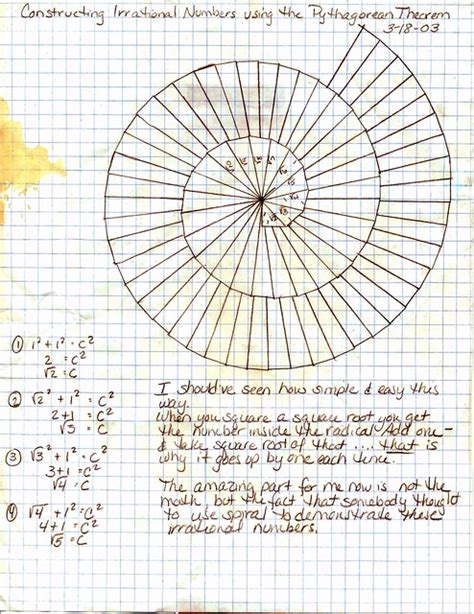 Constructing Irrational Numbers using the Pythagorean Theorem
3-18-03
① 1² + 1² = C²
2 = C²
√2 = C
② √2² + 1² = C²
2+1 = C²
√3 = C
③ √3² + 1² = C²
3+1 = C²
√4 = C
④ √4² + 1² = C²
4+1 = C²
√5 = C
I should've seen how simple & easy this
way.
When you square a square root you get
the number inside the radical. Add one –
& take square root of that .... that is
why it goes up by one each time.
The amazing part for me now is not the
math, but the fact that somebody thought
to use spiral to demonstrate these
irrational numbers.